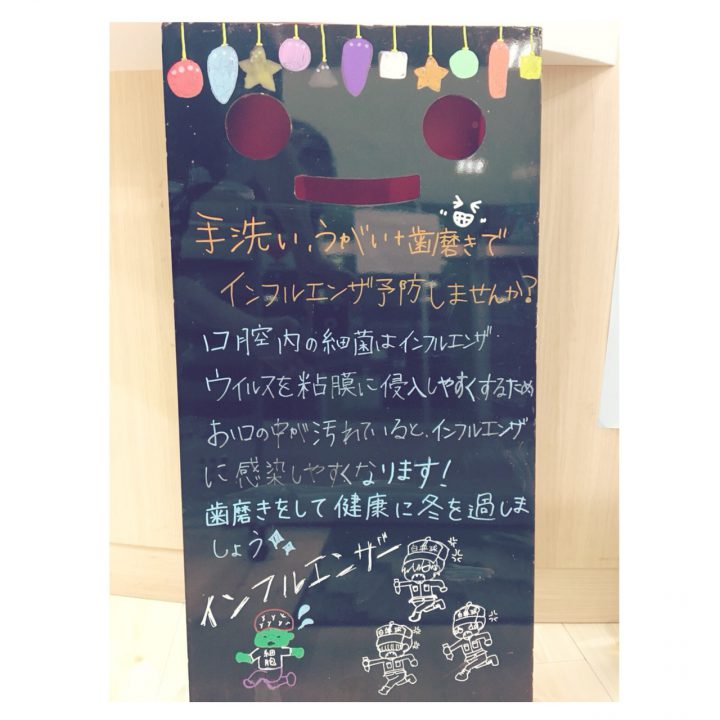 手洗い、うがい+歯磨きで
インフルエンザ予防しませんか?
口腔内の細菌はインフルエンザ
ウイルスを粘膜に侵入しやすくするため
お口の中が汚れていると、インフルエンザ
に感染しやすくなります!
歯磨きをして健康に冬を過しま
しょう
インフルエンザー
白血球
細胞
白血球
白血球